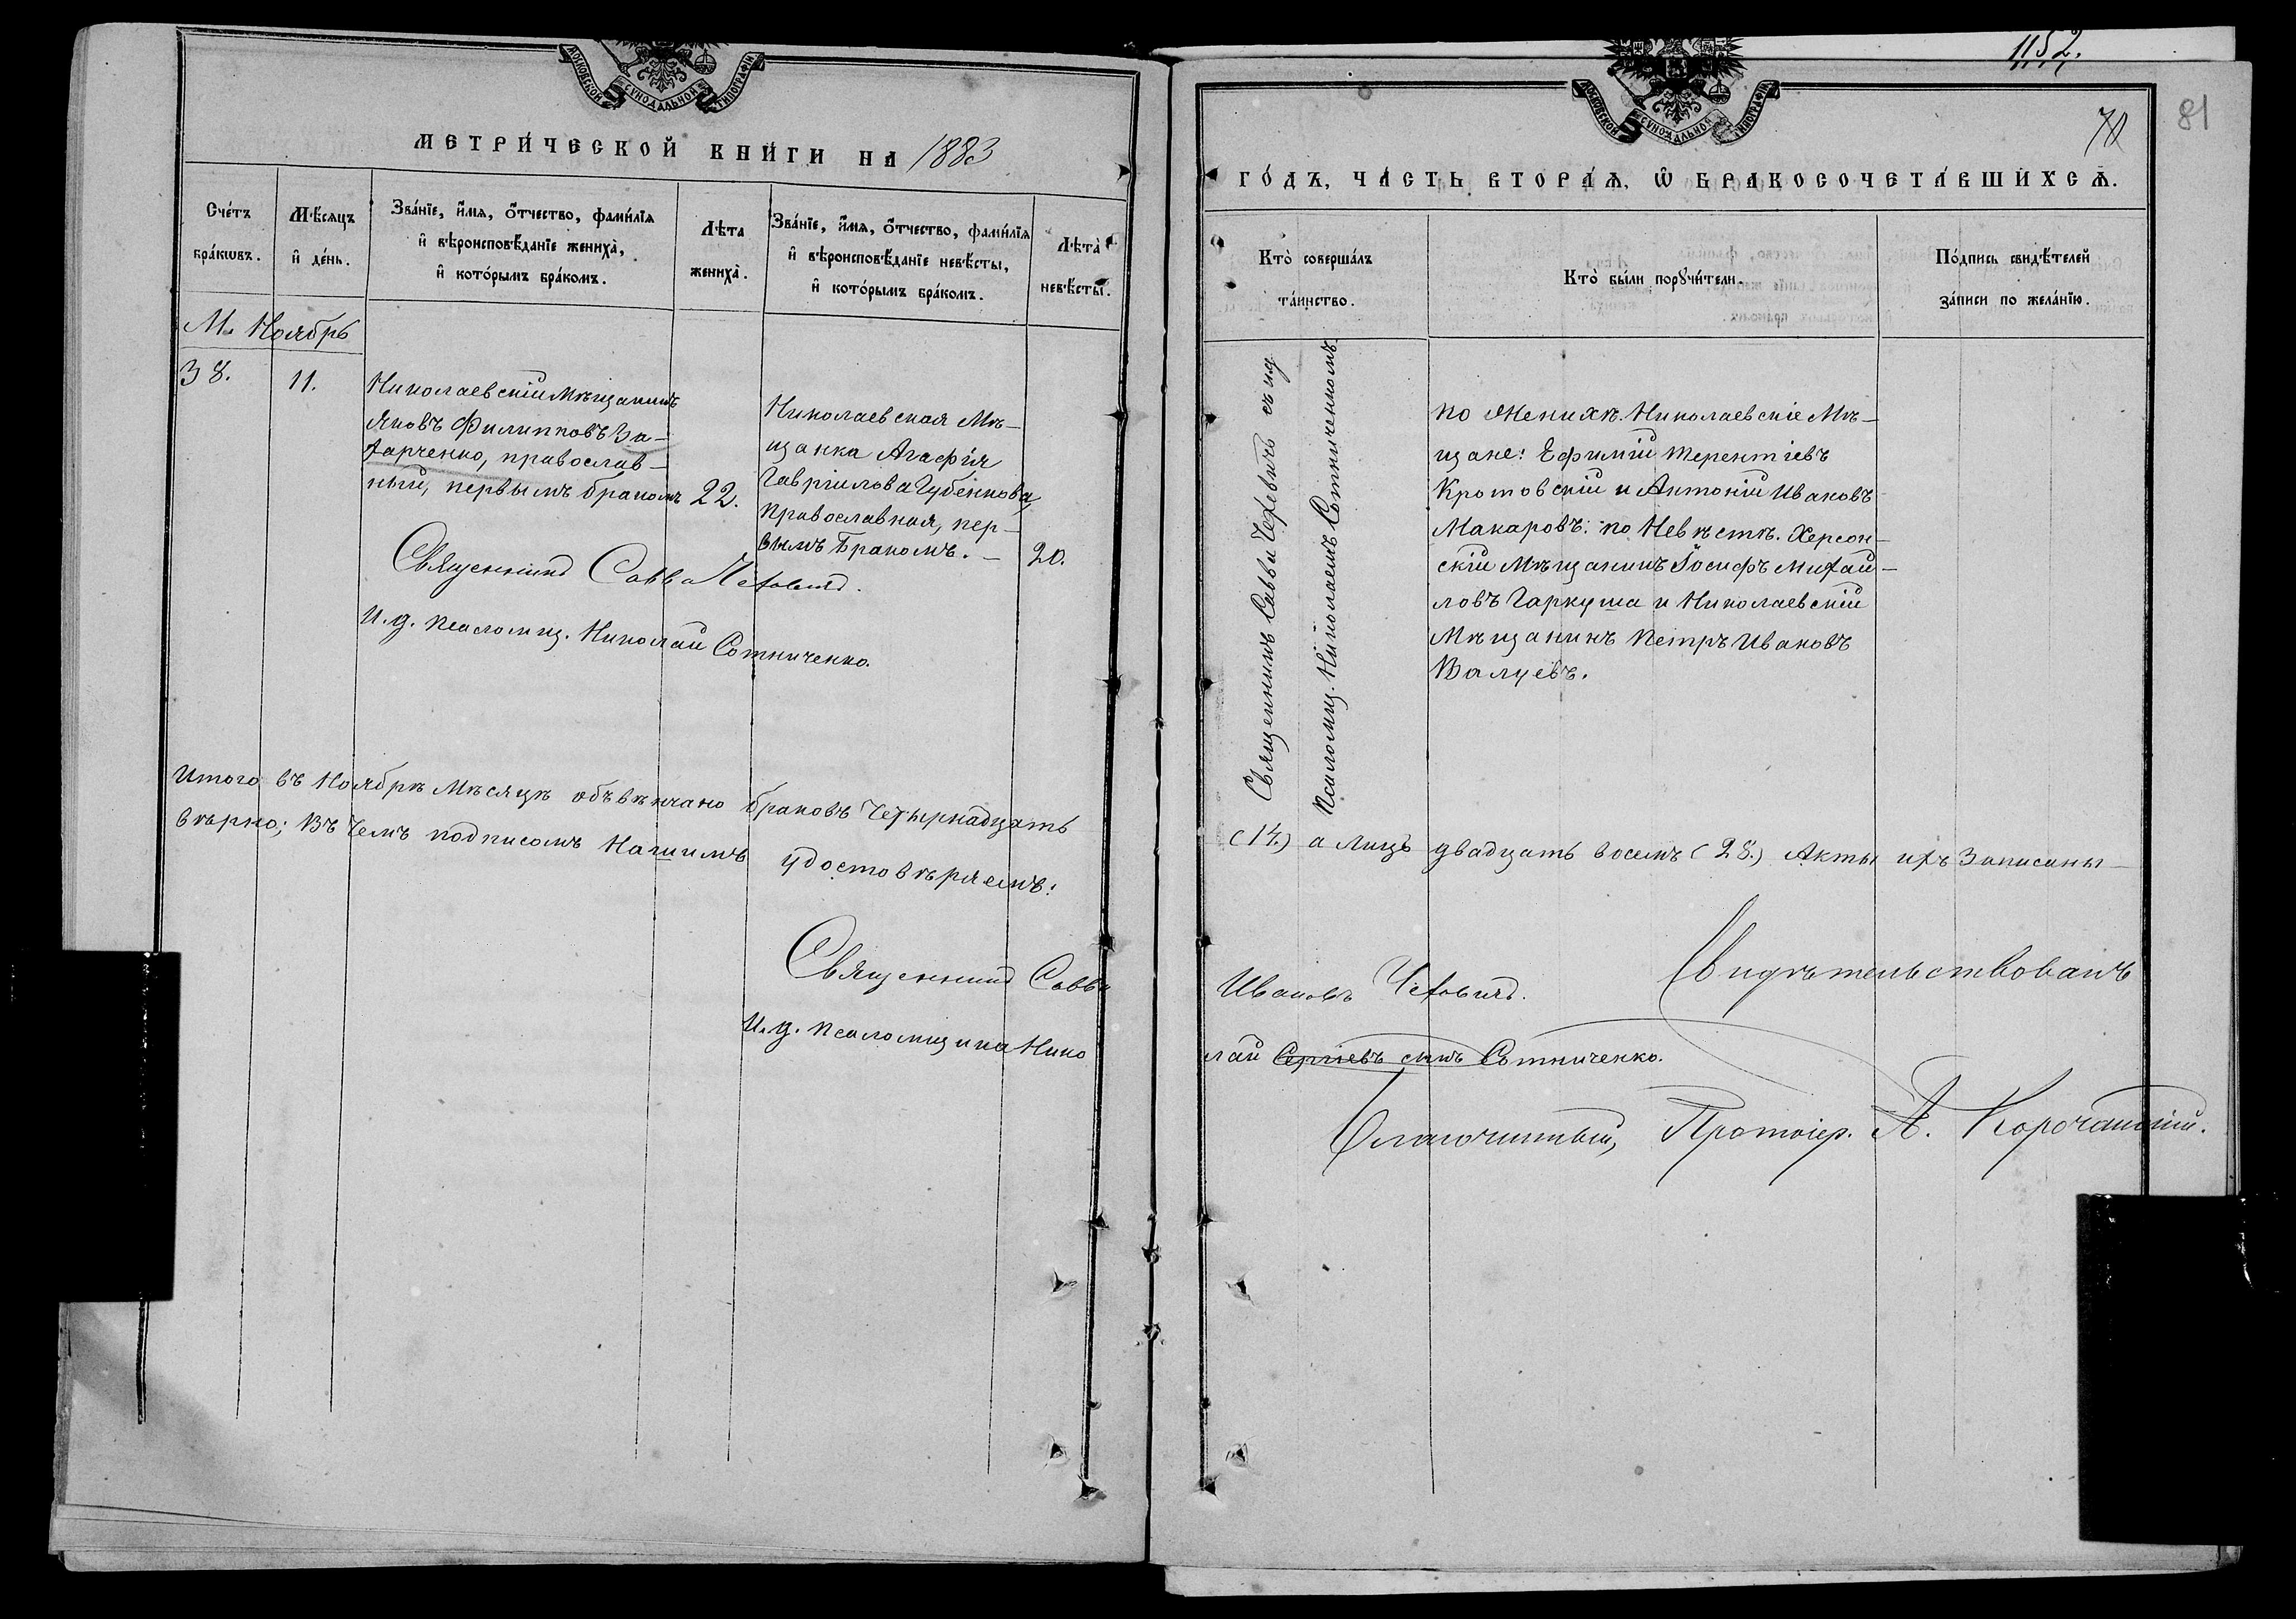 МОСКОВСКОЙ СУНОДАЛЬНОЙ ТИПОГРАФІИ
МЕТРИ́ЧЕСКОЙ КНИ́ГИ НА 1883
Сче́тъ бра́кѡвъ.
Мѣ́сяцъ и҆ де́нь.
Зва́нїе, и҆́мѧ, ѻ҆́тчество, фами́лїѧ
и҆ вѣроисповѣ́данїе жениха̀,
и҆ кото́рымъ бра́комъ.
Лѣта жениха̀.
Зва́нїе, и҆́мѧ, ѻ҆́тчество, фами́лїѧ
и҆ вѣроисповѣ́данїе невѣ́сты,
и҆ кото́рымъ бра́комъ.
Лѣта̀ невѣ́сты.
М. Ноябрь
38.
11.
Николаевскій Мѣщанинъ
Яковъ Филипповъ За-
харченко, православ-
ный, первымъ бракомъ
22.
Николаевская Мѣ-
щанка Агафія
Гавріилова Губенкова,
православная, пер-
вымъ Бракомъ. —
20.
Священникъ Савва Чехович.
И.д. псаломщ. Николай Сотниченко.
Итого въ Ноябрѣ Мѣсяцѣ объвѣнчано браковъ Четырнадцать
вѣрно; Въ Чемъ подписомъ Нашимъ удостовѣряемъ:
Священникъ Савва
И.д. псаломщика Нико
1152.
70
81
МОСКОВСКОЙ СУНОДАЛЬНОЙ ТИПОГРАФІИ
ГО́ДЪ, ЧА́СТЬ ВТОРА́Ѧ, Ѡ҆ БРАКОСОЧЕТА́ВШИХСѦ.
Кто̀ соверша́лъ та́инство.
Кто̀ бы́ли порꙋчи́тели.
По́дпись свидѣ́телей за́писи по жела́нїю.
Священникъ Савва Чеховичъ съ ид
Псаломщ. Николаемъ Сотниченкомъ.
По Женихѣ. Николаевскіе Мѣ-
щане: Ефимій Терентіевъ
Кротовскій и Антоній Ивановъ
Макаровъ: по Невѣстѣ. Херсон-
скій Мѣщанинъ Іосифъ Михай-
ловъ Гаркуша и Николаевскій
Мѣщанинъ Петръ Ивановъ
Валуевъ.
(14.) а лицъ двадцать восемь (28.) Акты ихъ Записаны —
Ивановъ Чехович.
лай Сергіевъ сынъ Сотниченко.
Свидѣтельствовалъ
Благочинный, Протоіер. А. Корочанскій.